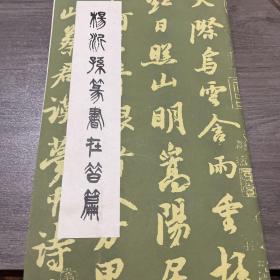 楊沂孫篆書在昔篇
天際烏雲含雨重
紅日照山明嵩陽居
萬里
君謨夢中詩